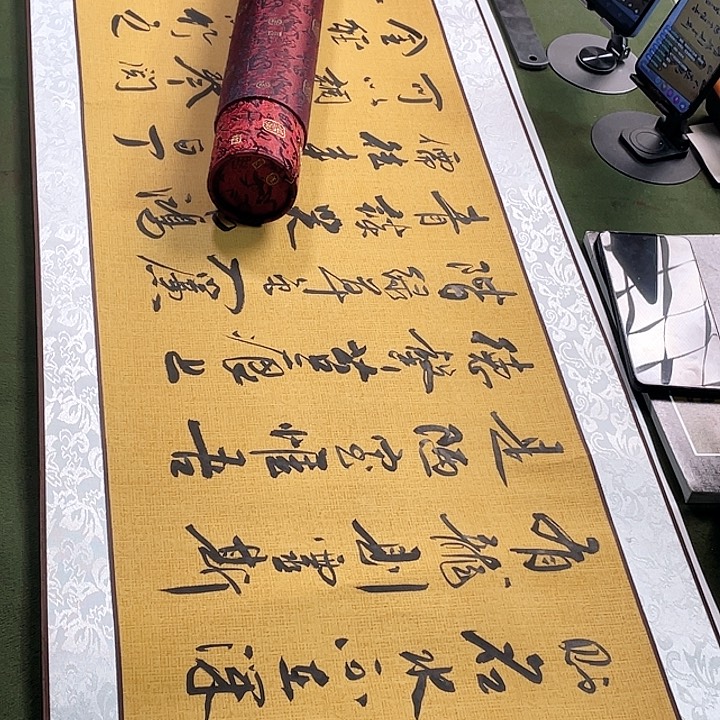 则名水不在深
有龍則靈斯
是陋室惟吾
德馨苔痕上
階綠草色入簾
青談笑鴻
儒往来白丁
可以調琴閱
金經竹之